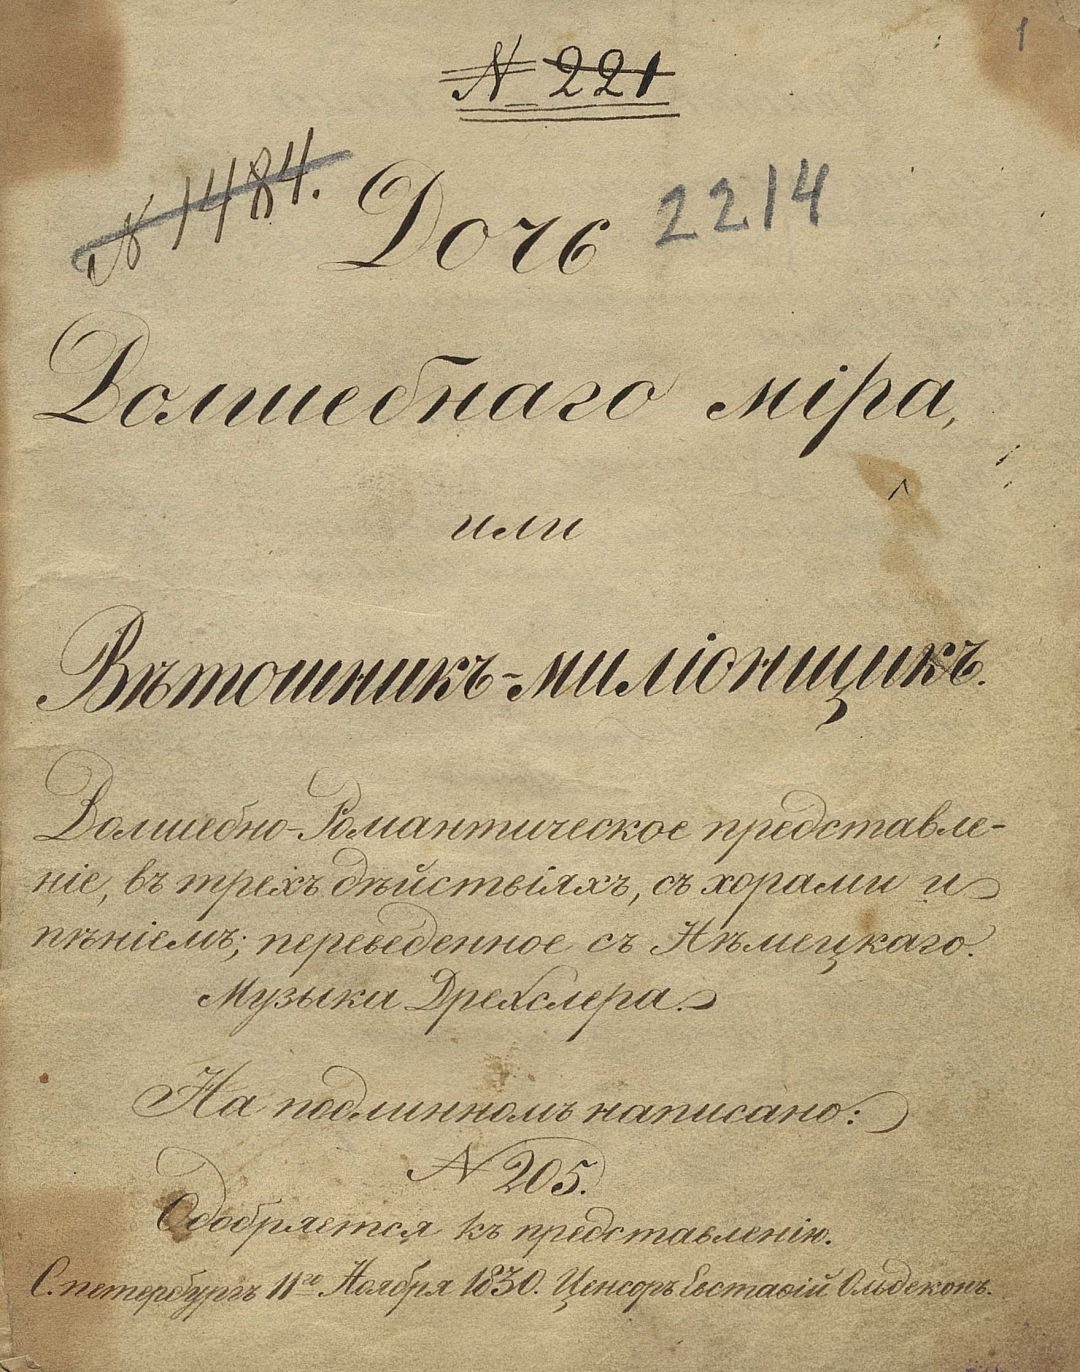 1
N 221
N 1484.
Дочь 2214
Волшебнаго міра,
или
Вѣтошникъ-миліонщикъ.
Волшебно-Романтическое представле-
ніе, въ трехъ дѣйствіяхъ, съ хорами и
пѣніемъ; переведенное съ Нѣмецкаго.
Музыка Дрехслера.
На подлинномъ написано:
N 205.
Одобряется къ представленію.
С. петербургъ 11го Ноября 1830. Ценсоръ Евстафій Ольдекопъ.